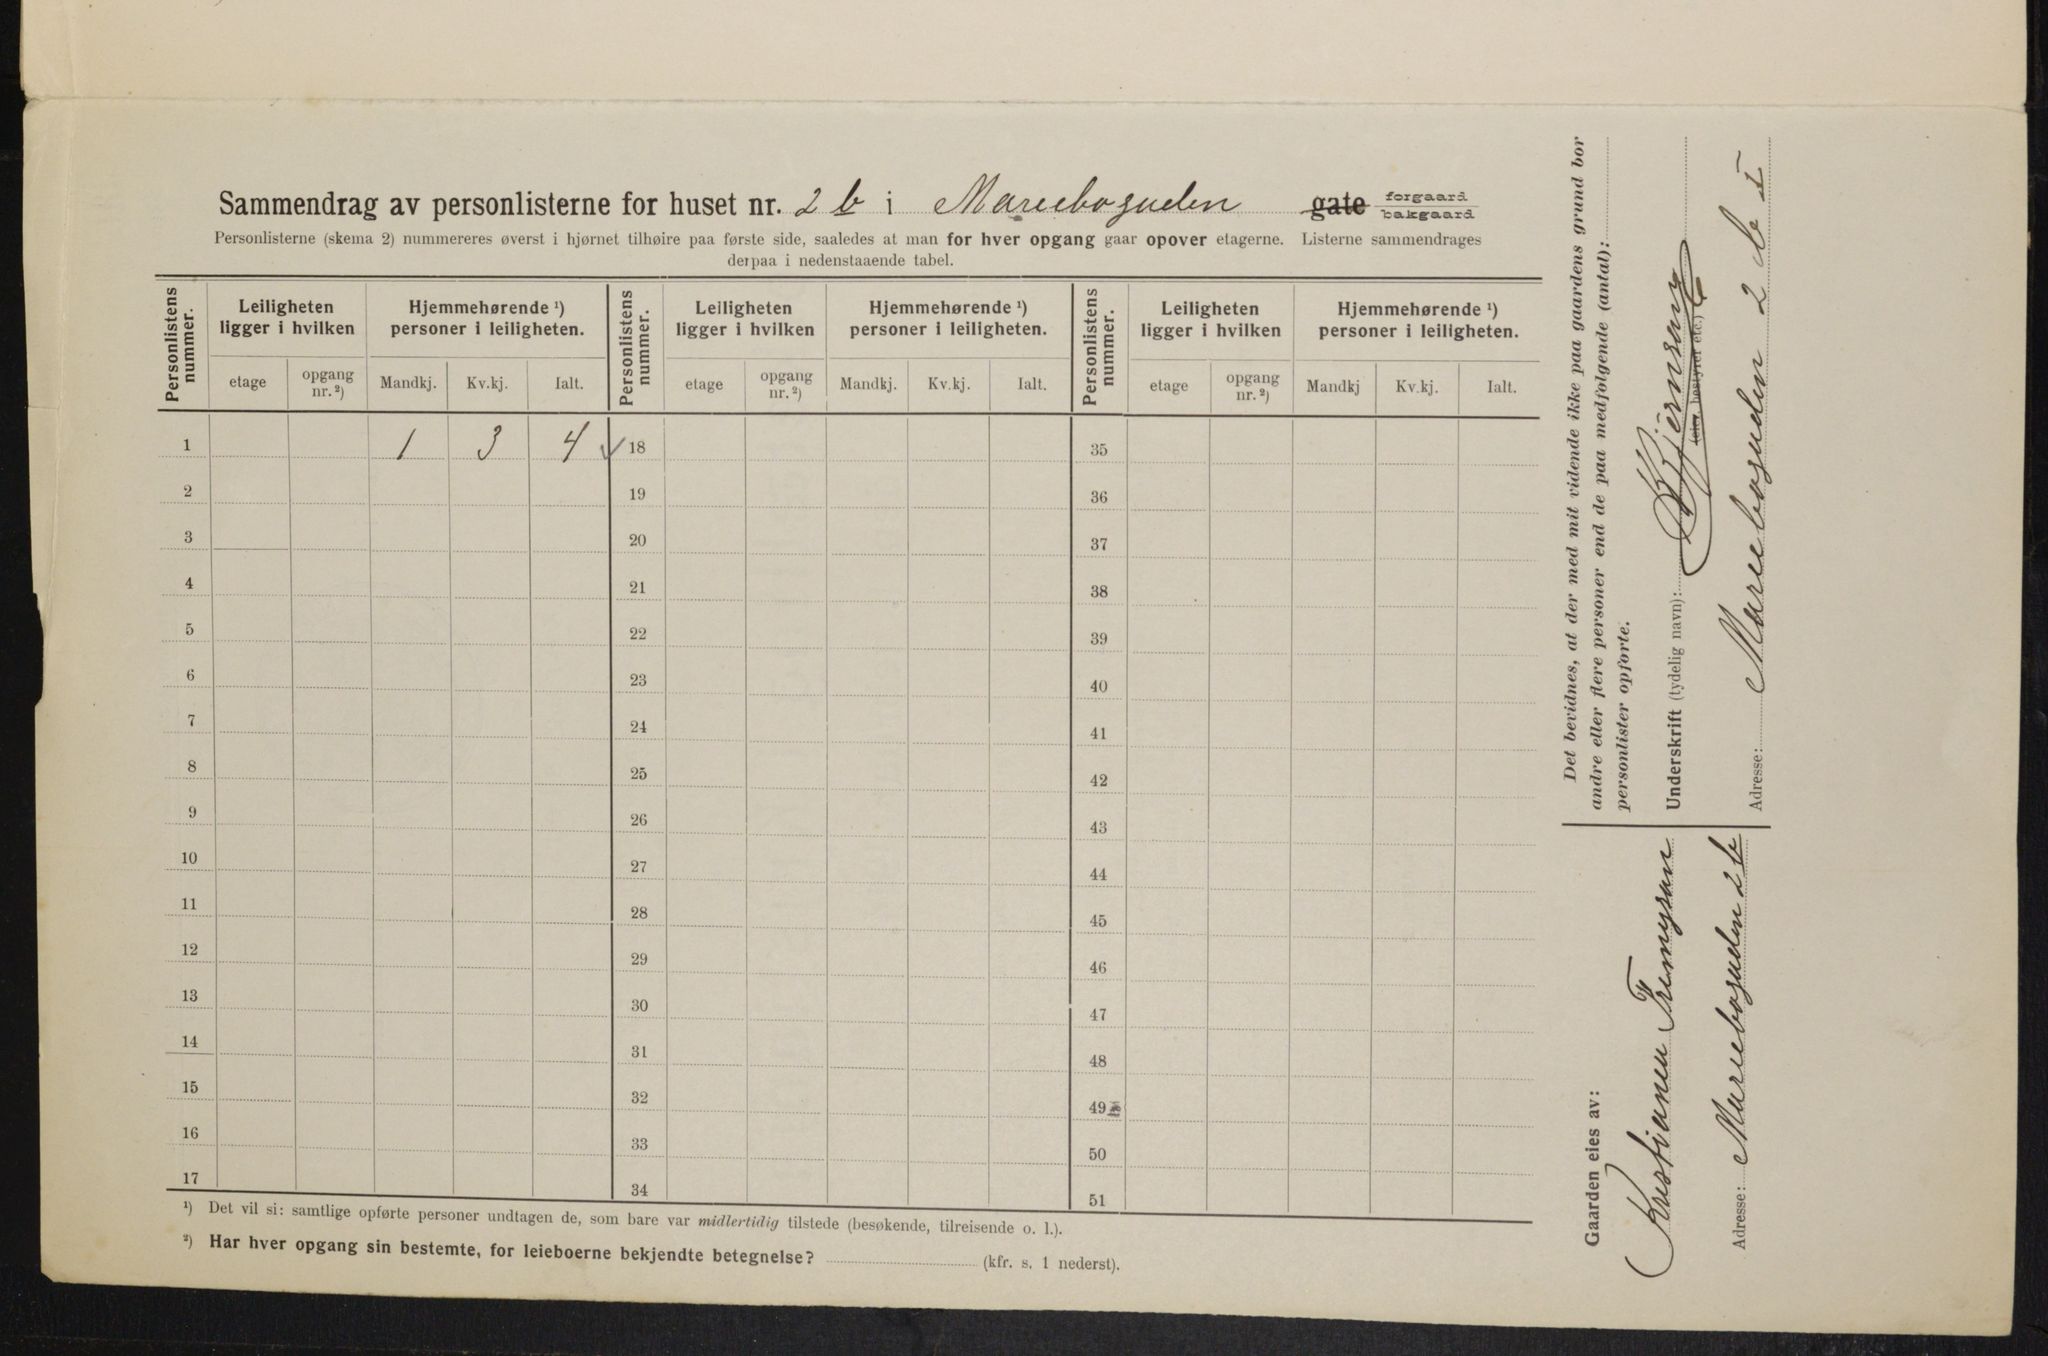 Sammendrag av personlisterne for huset nr. 2 b i Marieboguden gate forgaard bakgaard
Personlisterne (skema 2) nummereres øverst i hjørnet tilhøire paa første side, saaledes at man for hver opgang gaar opover etagerne. Listerne sammendrages
derpaa i nedenstaaende tabel.
Personlistens nummer. Leiligheten ligger i hvilken Hjemmehørende ¹) personer i leiligheten. Personlistens nummer. Leiligheten ligger i hvilken Hjemmehørende ¹) personer i leiligheten. Personlistens nummer. Leiligheten ligger i hvilken Hjemmehørende ¹) personer i leiligheten.
etage opgang nr. ²) Mandkj. Kv.kj. Ialt. etage opgang nr. ²) Mandkj. Kv.kj. Ialt. etage opgang nr. ²) Mandkj Kv.kj. Ialt.
1 1 3 4 ✓ 18 35
2 19 36
3 20 37
4 21 38
5 22 39
6 23 40
7 24 41
8 25 42
9 26 43
10 27 44
11 28 45
12 29 46
13 30 47
14 31 48
15 32 49
16 33 50
17 34 51
¹) Det vil si: samtlige opførte personer undtagen de, som bare var midlertidig tilstede (besøkende, tilreisende o. l.).
²) Har hver opgang sin bestemte, for leieboerne bekjendte betegnelse? (kfr. s. 1 nederst).
Det bevidnes, at der med mit vidende ikke paa gaardens grund bor
andre eller flere personer end de paa medfølgende (antal):
personlister opførte.
Underskrift (tydelig navn):
(eier, bestyrer etc.)
Adresse: Marieboguden 2 b I
Gaarden eies av:
Adresse: Marieboguden 2 b